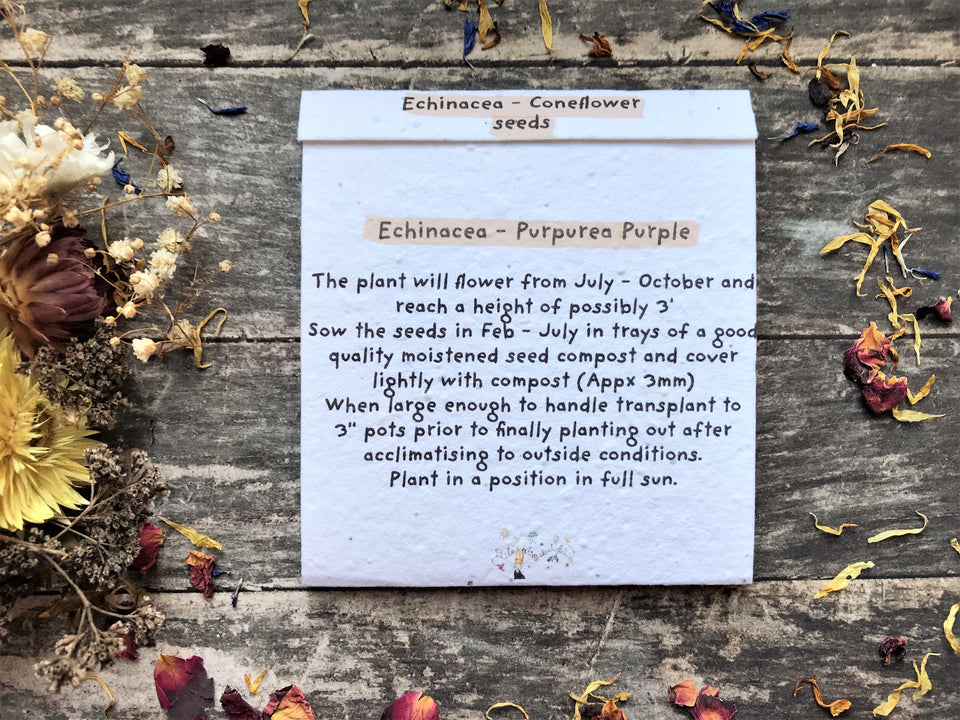 Echinacea - Coneflower
seeds
Echinacea - Purpurea Purple
The plant will flower from July - October and
reach a height of possibly 3'
Sow the seeds in Feb - July in trays of a good
quality moistened seed compost and cover
lightly with compost (Appx 3mm)
When large enough to handle transplant to
3" pots prior to finally planting out after
acclimatising to outside conditions.
Plant in a position in full sun.